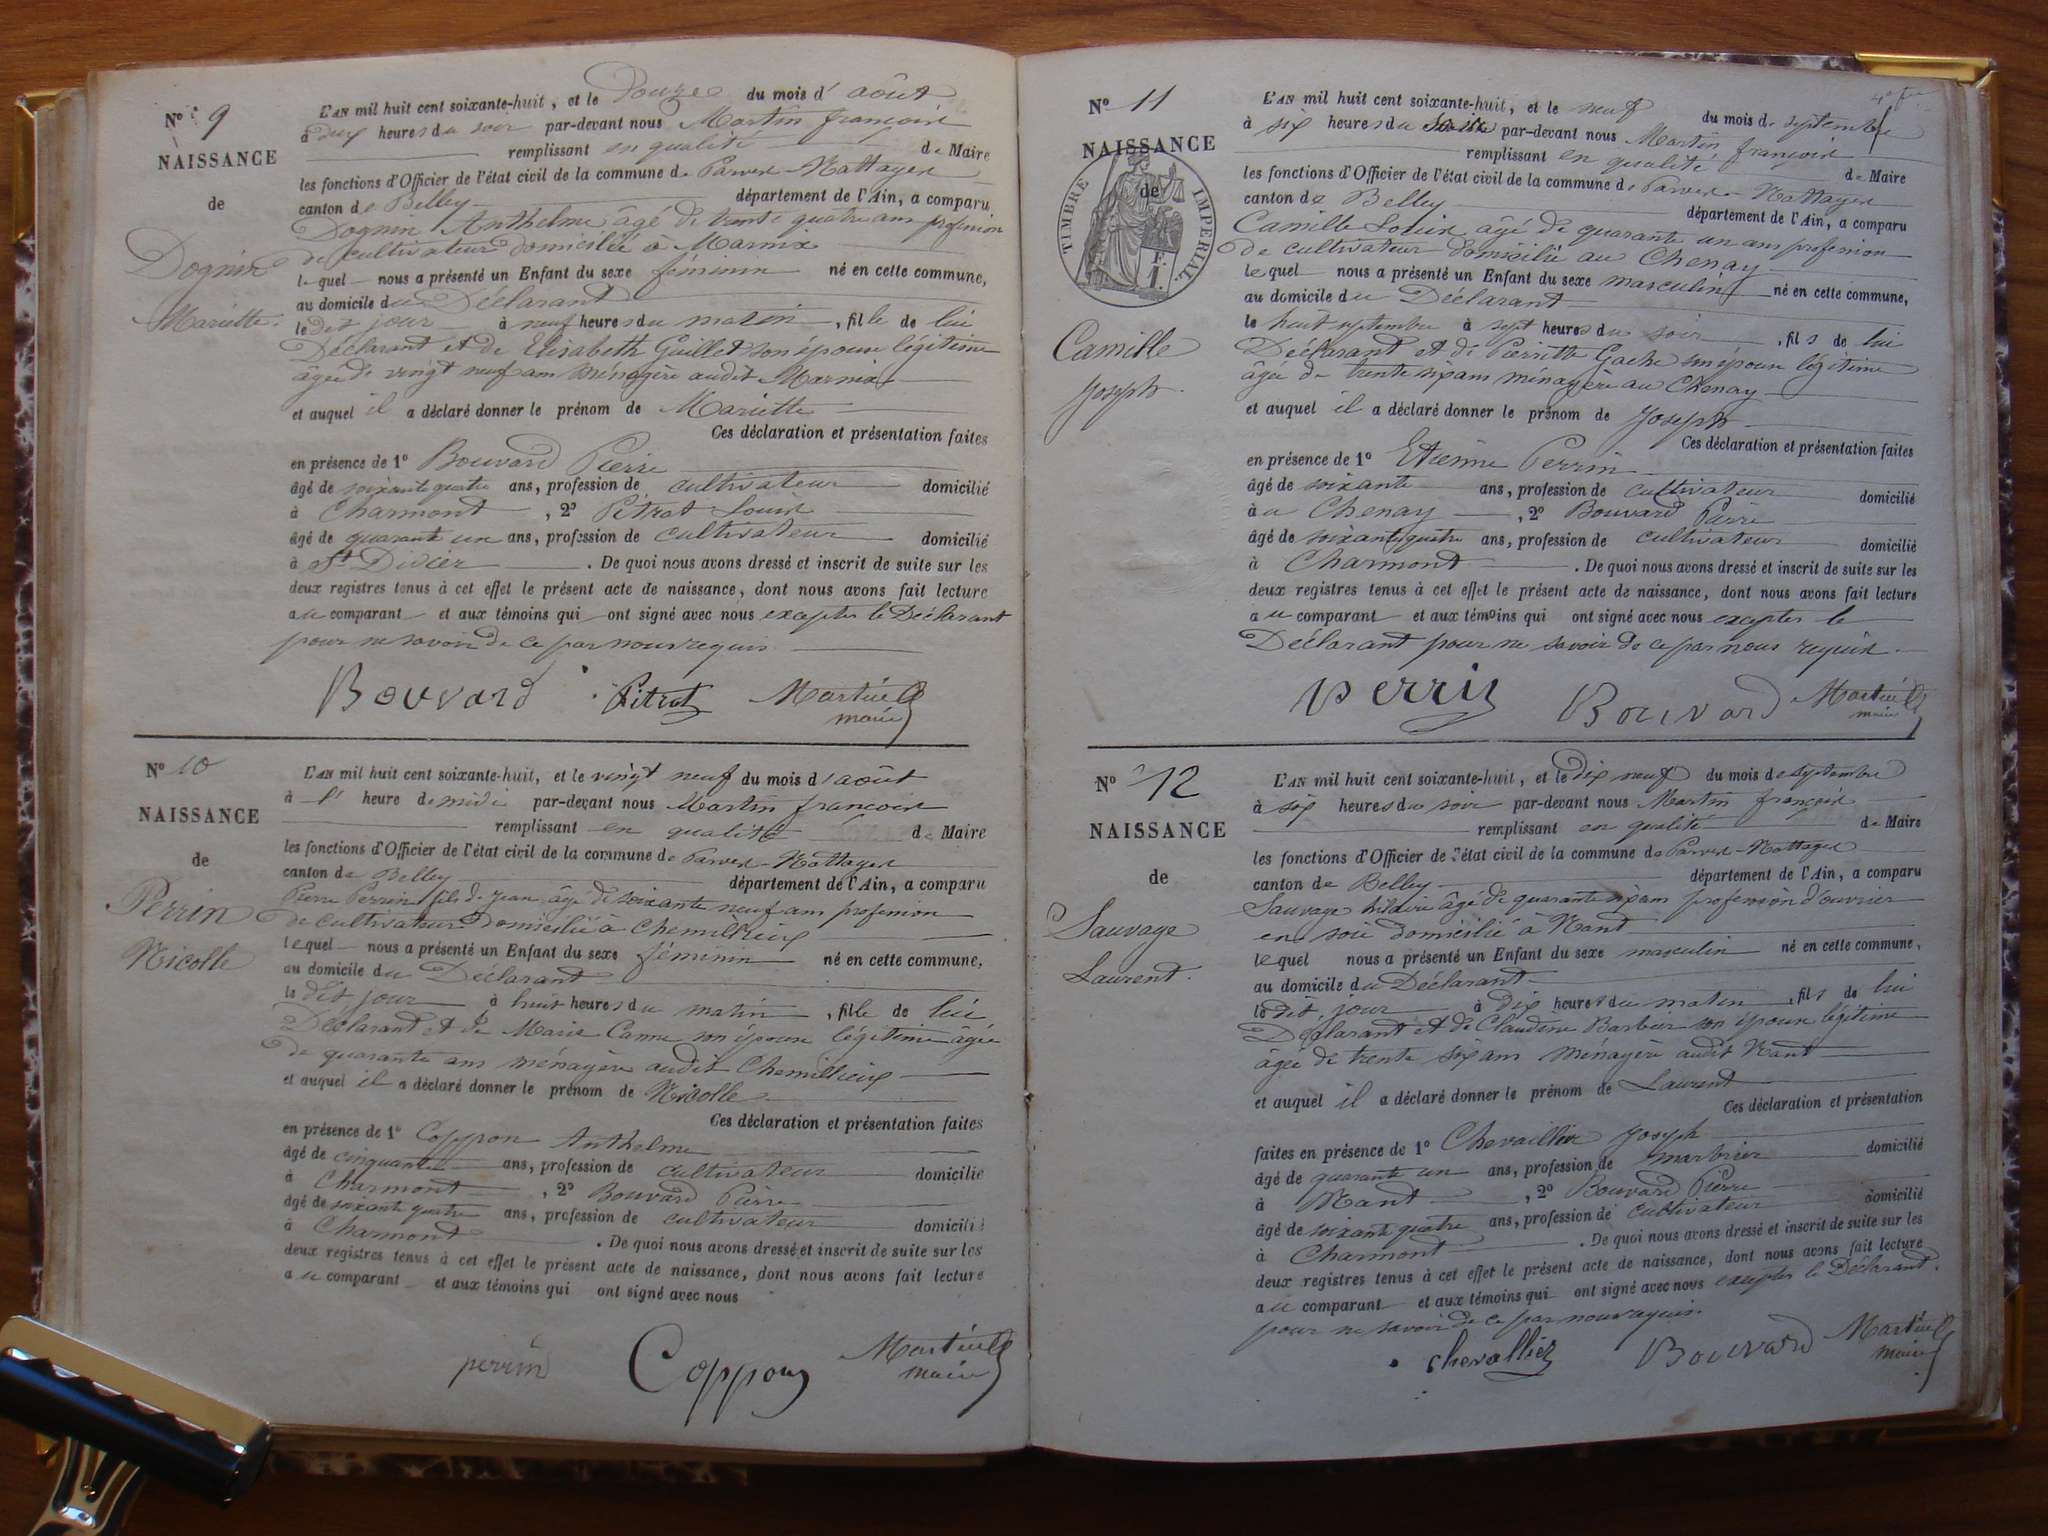 N° 9
NAISSANCE
de
Dognin
Mariette.
L'AN mil huit cent soixante-huit, et le Douze du mois d' août
à heures du soir par-devant nous Martin françois
remplissant en qualité de Maire
les fonctions d'Officier de l'état civil de la commune de Parves-Nattages
canton de Belley département de l'Ain, a comparu
Dognin Anthelme âgé de trente quatre ans profession
de cultivateur domicilié à Marnix
lequel nous a présenté un Enfant du sexe féminin né en cette commune,
au domicile du Déclarant
le dit jour à neuf heures du matin, fille de lui
Déclarant et de Elisabeth Guillet son épouse légitime
âgée de vingt neuf ans ménagère audit Marnix
et auquel il a déclaré donner le prénom de Mariette
Ces déclaration et présentation faites
en présence de 1° Bouvard Pierre
âgé de soixante quatre ans, profession de cultivateur domicilié
à Charmont, 2° Pitrat Louis
âgé de quarante un ans, profession de cultivateur domicilié
à St Didier. De quoi nous avons dressé et inscrit de suite sur les
deux registres tenus à cet effet le présent acte de naissance, dont nous avons fait lecture
au comparant et aux témoins qui ont signé avec nous excepter le Déclarant
pour ne savoir de ce par nous requis
Bouvard Pitrat Martin
maire
N° 10
NAISSANCE
de
Perrin
Nicolle
L'AN mil huit cent soixante-huit, et le vingt neuf du mois d'août
à l' heure de midi par-devant nous Martin françois
remplissant en qualité de Maire
les fonctions d'Officier de l'état civil de la commune de Parves-Nattages
canton de Belley département de l'Ain, a comparu
Pierre Perrin fils de Jean âgé de soixante neuf ans profession
de cultivateur domicilié à Chemillieux
lequel nous a présenté un Enfant du sexe féminin né en cette commune,
au domicile du Déclarant
le dit jour à huit heures du matin, fille de lui
Déclarant et de Marie Canne son épouse légitime âgée
de quarante ans ménagère audit Chemillieux
et auquel il a déclaré donner le prénom de Nicolle
Ces déclaration et présentation faites
en présence de 1° Coppon Anthelme
âgé de cinquante ans, profession de cultivateur domicilié
à Charmont, 2° Bouvard Pierre
âgé de soixante quatre ans, profession de cultivateur domicilié
à Charmont. De quoi nous avons dressé et inscrit de suite sur les
deux registres tenus à cet effet le présent acte de naissance, dont nous avons fait lecture
au comparant et aux témoins qui ont signé avec nous
perrin Coppon Martin
maire
N° 11
NAISSANCE
de
TIMBRE IMPERIAL
F.
1.
Camille
Joseph.
L'AN mil huit cent soixante-huit, et le neuf du mois de septembre
à six heures du par-devant nous Martin françois
remplissant en qualité de Maire
les fonctions d'Officier de l'état civil de la commune de Parves-Nattages
canton de Belley département de l'Ain, a comparu
Camille Louis âgé de quarante un ans profession
de cultivateur domicilié au Chenay
lequel nous a présenté un Enfant du sexe masculin né en cette commune,
au domicile du Déclarant
le huit septembre à sept heures du soir, fils de lui
Déclarant et de Pierrette Gache son épouse légitime
âgée de trente six ans ménagère au Chenay
et auquel il a déclaré donner le prénom de Joseph
Ces déclaration et présentation faites
en présence de 1° Etienne Perrin
âgé de soixante ans, profession de cultivateur domicilié
au Chenay, 2° Bouvard Pierre
âgé de soixante quatre ans, profession de cultivateur domicilié
à Charmont. De quoi nous avons dressé et inscrit de suite sur les
deux registres tenus à cet effet le présent acte de naissance, dont nous avons fait lecture
au comparant et aux témoins qui ont signé avec nous excepter le
Déclarant pour ne savoir de ce par nous requis.
perrin Bouvard Martin
maire
N° 12
NAISSANCE
de
Sauvage
Laurent.
L'AN mil huit cent soixante-huit, et le dix neuf du mois de septembre
à six heures du soir par-devant nous Martin françois
remplissant en qualité de Maire
les fonctions d'Officier de l'état civil de la commune de Parves-Nattages
canton de Belley département de l'Ain, a comparu
Sauvage hilaire âgé de quarante six ans profession d'ouvrier
en soie domicilié à Nant
lequel nous a présenté un Enfant du sexe masculin né en cette commune,
au domicile du Déclarant
le dit jour à dix heures du matin, fils de lui
Déclarant et de Claudine Barbier son épouse légitime
âgée de trente six ans ménagère audit Nant
et auquel il a déclaré donner le prénom de Laurent
Ces déclaration et présentation
faites en présence de 1° Chevaillier Joseph
âgé de quarante un ans, profession de marbrier domicilié
à Nant, 2° Bouvard Pierre
âgé de soixante quatre ans, profession de cultivateur domicilié
à Charmont. De quoi nous avons dressé et inscrit de suite sur les
deux registres tenus à cet effet le présent acte de naissance, dont nous avons fait lecture
au comparant et aux témoins qui ont signé avec nous excepter le Déclarant
pour ne savoir de ce par nous requis.
chevallier Bouvard Martin
maire